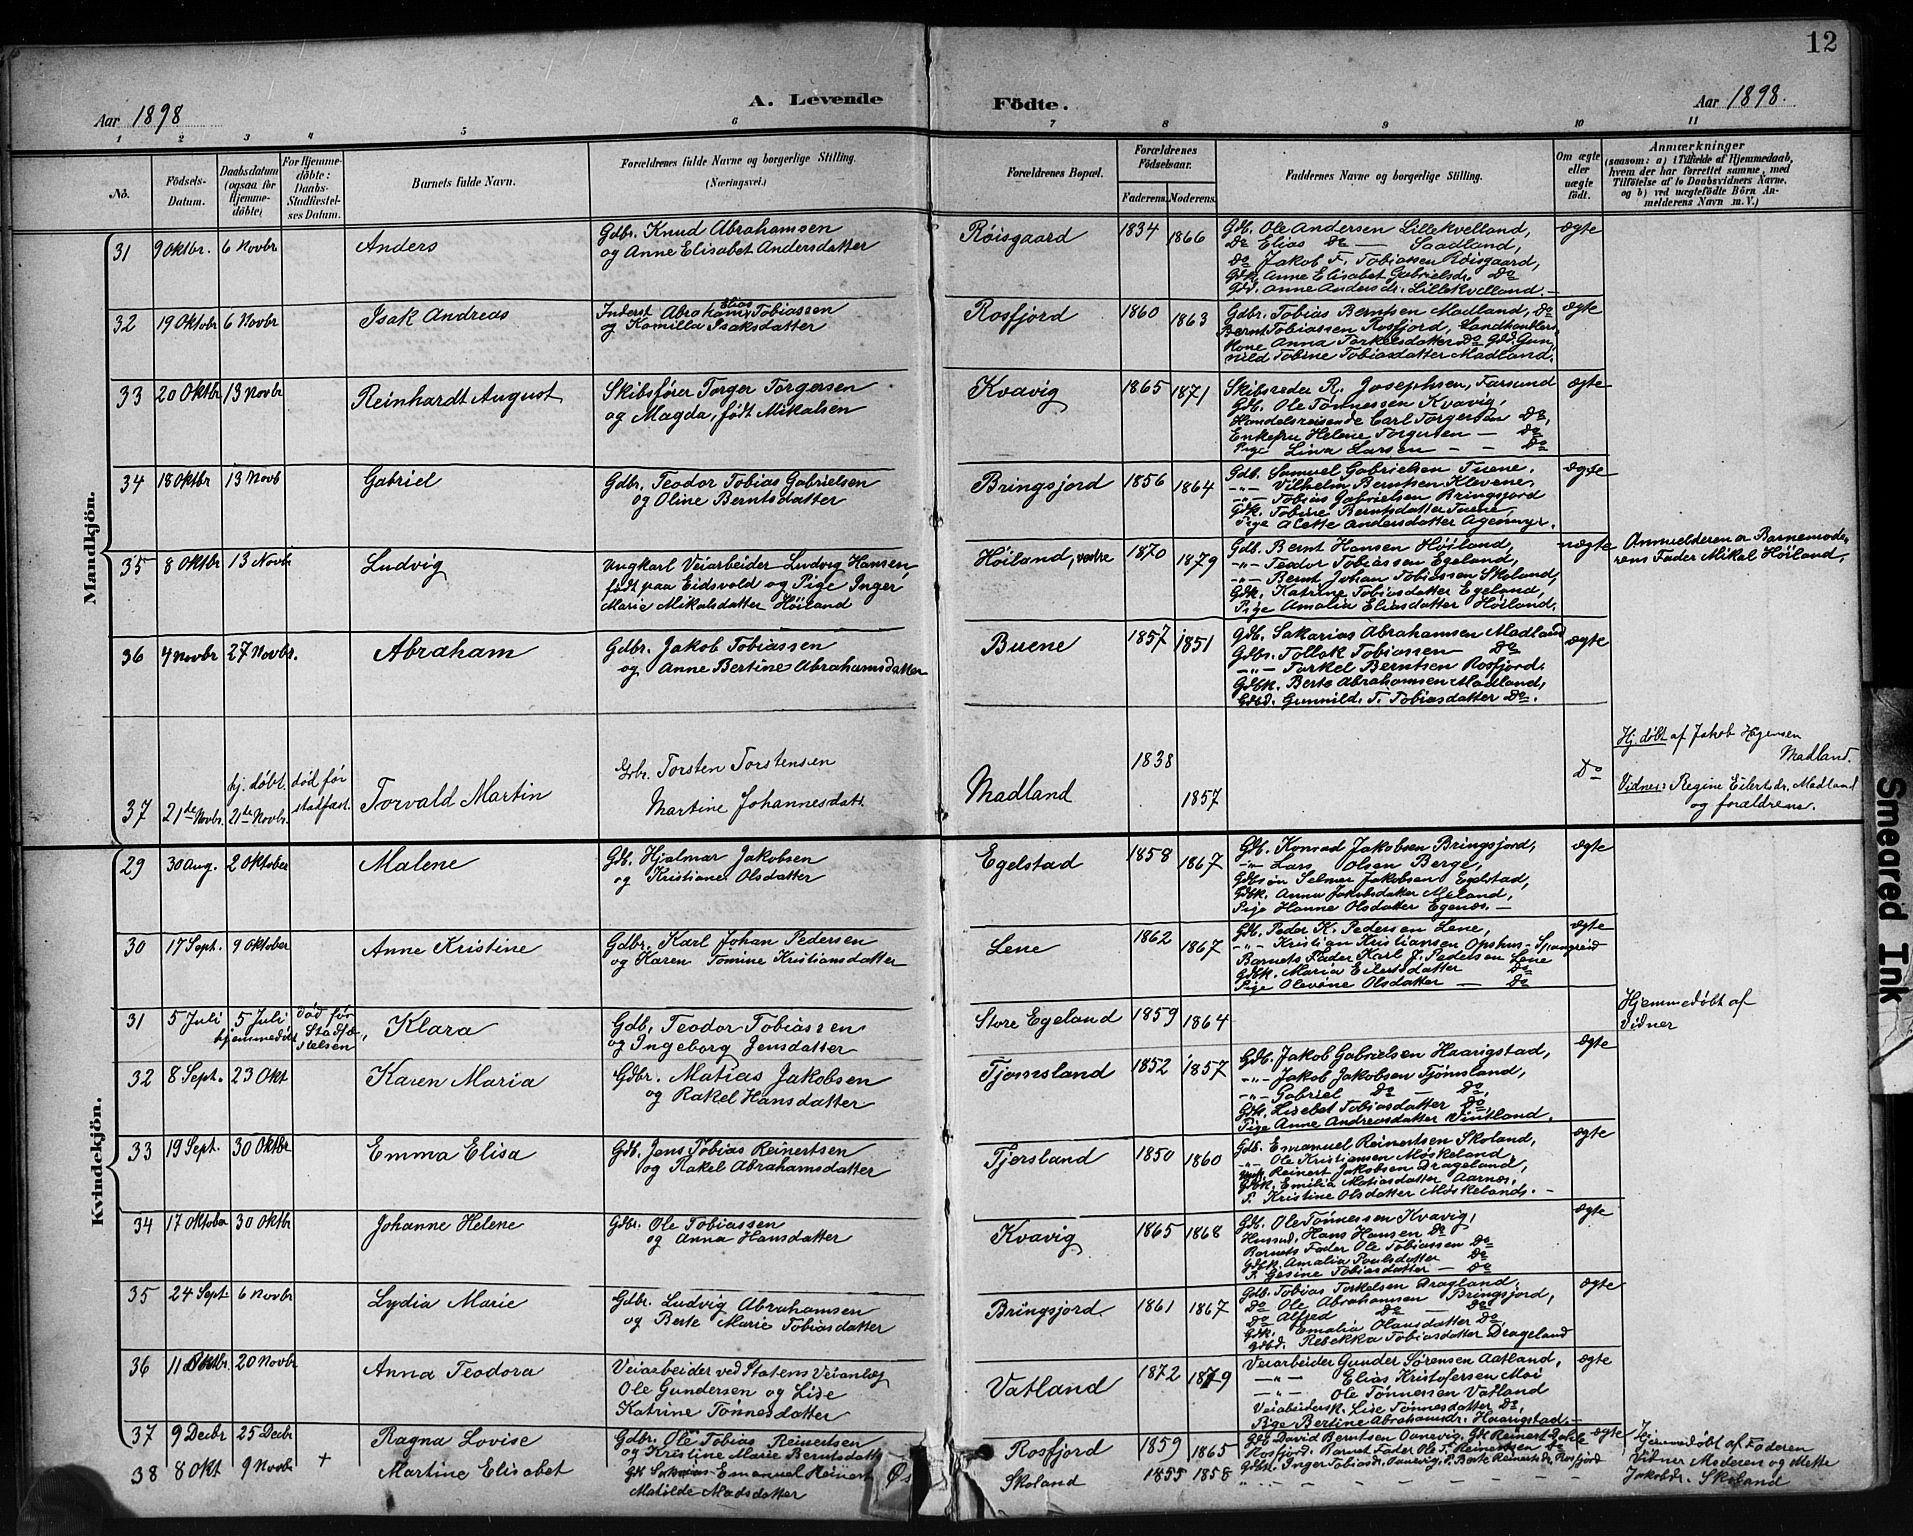 12
Aar 1898
A. Levende Födte.
Aar 1898.
1 2 3 4 5 6 7 8 9 10 11
No.
Födsels-Datum.
Daabsdatum (ogsaa for Hjemme-döbte)
For Hjemme-döbte: Daabs-Stadfæstel-ses Datum.
Barnets fulde Navn.
Forældrenes fulde Navne og borgerlige Stilling. (Næringsvei.)
Forældrenes Bopæl.
Forældrenes Födselsaar.
Faderens. Moderens.
Faddernes Navne og borgerlige Stilling.
Om ægte eller uægte födt.
Anmærkninger
(saasom: a) i Tilfælde af Hjemmedaab, hvem der har forrettet samme, med Tilföielse af to Daabsvidners Navne, og b) ved uægtefödte Börn An-melderens Navn m. V.)
Mandkjön.
31 9 Oktbr. 6 Novbr Anders
Gdbr. Knud Abrahamsen
og Anne Elisabet Andersdatter
Røisgaard 1834 1866
Gdb. Ole Andersen Lillekvelland,
Do Elias Do — Saadland,
Do Jakob F. Tobiassen Røisgaard,
Gdk. Anne Elisabet Gabrielsdr. Do
Gdd. Anne Andersdr. Lillekvelland. —
ægte
32 19 Oktobr 6 Novbr Isak Andreas
Inderst Abraham Elias Tobiassen
og Kamilla Isaksdatter
Rosfjord 1860 1863
Gdbr. Tobias Berntsen Madland, Do
Bernt Tobiassen Rosfjord, Landhandlers
Kone Anna Torkelsdatter Do Gdd. Gun-
nild Tobine Tobiasdatter Madland.
ægte
33 20 Oktbr 13 Novbr Reinhardt August
Skibsfører Torger Torgersen
og Magda, født Mikalsen
Kvavig 1865 1871
Skibsreder R. Josephsen, Farsund
Gdb. Ole Tønnessen Kvavig,
Handelsreisende Carl Torgersen Do,
Enkefru Helene Torgersen — Do
Pige Lina Larsen — — Do
ægte
34 18 Oktbr 13 Novb Gabriel
Gdbr. Teodor Tobias Gabrielsen
og Oline Berntsdatter
Bringsjord 1856 1864
Gdb. Samuel Gabrielsen Tuene.
-"- Vilhelm Berntsen Klevene,
-"- Tobias Gabrielsen Bringsjord
Gdk. Tobine Berntsdatter Tuene,
Pige Alette Andersdatter Agemyr.
ægte
35 8 Oktbr 13 Novbr Ludvig
Ungkarl Veiarbeider Ludvig Hansen,
født paa Eidsvold og Pige Inger
Marie Mikalsdatter Höiland
Höiland, vestre 1870 1879
Gdb. Bernt Hansen Höiland,
-"- Teodor Tobiassen Egeland,
-"- Bernt Johan Tobiassen Skoland,
Gdk. Katrine Tobiasdatter Egeland,
Pige Amalia Eliasdatter Höiland.
uægte
Anmelderen er Barnemode-
rens Fader Mikal Höiland,
36 4 Novbr 27 Novbr. Abraham
Gdbr. Jakob Tobiassen
og Anne Bertine Abrahamsdatter
Buene 1857 1851
Gdb. Sakarias Abrahamsen Madland
Gdbr. Tollak Tobiassen — Do
-"- Torkel Berntsen Rosfjord.
Gdbk. Berte Abrahamsen Madland,
Gdbd. Gunnild. T. Tobiasdatter Do.
ægte
37 21de Novbr. hj. døbt. 21de Novbr. død før stadfæst. Torvald Martin
Gdbr. Torsten Torstensen
Martine Johannesdatt.
Madland 1838 1857
Do
Hj. døbt af Jakob
Madland.
Vidner: Regine Eilertsdr. Madland
og forældrene.
Kvindekjön.
29 30 Aug. 2 Oktober Malene
Gdb. Hjalmar Jakobsen
og Kristiane Olsdatter
Egelstad 1858 1867
Gdb. Konrad Jakobsen Bringsjord,
-"- Lars Olsen Berge,
Gdbsøn Selmer Jakobsen Egelstad,
Gdbk. Anna Jakobsdatter Meland,
Pige Hanne Olsdatter Egenæs. —
ægte
30 17 Sept. 9 Oktober Anne Kristine
Gdbr. Karl Johan Pedersen
og Karen Tomine Kristiansdatter
Lene 1862 1867
Gdb. Peder K. Pedersen Lene,
-"- Kristian Kristiansen Opshus - Spangreid
Barnets Fader Karl J. Pedersen Lene
Gdbk. Maria Eilertsdatter Do
Pige Olevine Olsdatter — Do
ægte
31 5 Juli 5 Juli hjemmedöbt Död før Stadfæ-stelsen, Klara
Gdb. Teodor Tobiassen
og Ingeborg Jensdatter
Store Egeland 1859 1864
Hjemmedøbt af
Vidner
32 8 Sept. 23 Okt Karen Maria
Gdbr. Matias Jakobsen
og Rakel Hansdatter
Tjomsland 1852 1857
Gdb. Jakob Gabrielsen Haarigstad,
-"- Jakob Jakobsen Tjömsland,
-"- Gabriel Do — Do,
Gdk. Lisebet Tobiasdatter Do
Pige Anne Andreasdatter Vintland.
ægte
33 19 Sept. 30 Oktbr Emma Elisa
Gdb. Jens Tobias Reinertsen
og Rakel Abrahamsdatter
Tjersland 1850 1860
Gdb. Emanuel Reinertsen Skoland,
-"- Ole Kristiansen Møskeland,
Reinert Jakobsen Drageland,
Gdbk. Emilia Matiasdatter Aarnes,
P. Kristine Olsdatter Møskelands. —
ægte
34 17 Oktober 30 Oktbr Johanne Helene
Gdbr. Ole Tobiassen
og Anna Hansdatter
Kvavig 1865 1868
Gdb. Ole Tönnessen Kvavig,
Husmd. Hans Hansen Do
Barnets Fader Ole Tobiassen Do
Gdbk. Amalia Poulsdatter Do
P. Gesine Tobiasdatter — Do
ægte
35 24 Sept. 6 Novbr Lydia Marie
Gdbr. Ludvig Abrahamsen
og Berte Marie Tobiasdatter
Bringsjord 1861 1867
Gdb. Tobias Torkelsen Dragland,
Do Ole Abrahamsen Bringsjord,
Do Alfred Do — Do
Gdk. Emalia Olausdatter Do,
Gdbd. Rebekka Tobiasdatter Drageland
ægte
36 11 Oktbr. 20 Novbr Anna Teodora
Veiarbeider ved Statens Veianlæg
Ole Gundersen og Lise
Katrine Tönnesdatter
Vatland 1872 1879
Veiarbeider Gunder Sörensen Aatland,
-"- Elias Kristofersen Moi
-"- Ole Tönnessen Vatland
Veiarbeidersk. Lise Tønnesdatter Do,
Pige Bertine Abrahamsdr. Haarigstad. —
ægte
37 9 Decbr 25 Decbr Ragna Lovise
Gdbr. Ole Tobias Reinertsen
og Kristine Marie Berntsdatter
Rosfjord 1859 1865
Gdb David Berntsen Oanevig, Gdk Reinert
Rosfjord. Barnet Fader Ole T. Reinertsen Do
Gdbk. Inger Tobiasdr. Oanevig, P. Berte Reinertsdr. Rosfjord
ægte
38 8 Okt 9 Novbr + Martine Elisabet
Emanuel Reinert
Matilde Madsdatter
Skoland 1855 1858
Hjemmedøbt af Faderen
Vidner Moderen og Mette
Jakobdr. Skoland
Smeared Ink